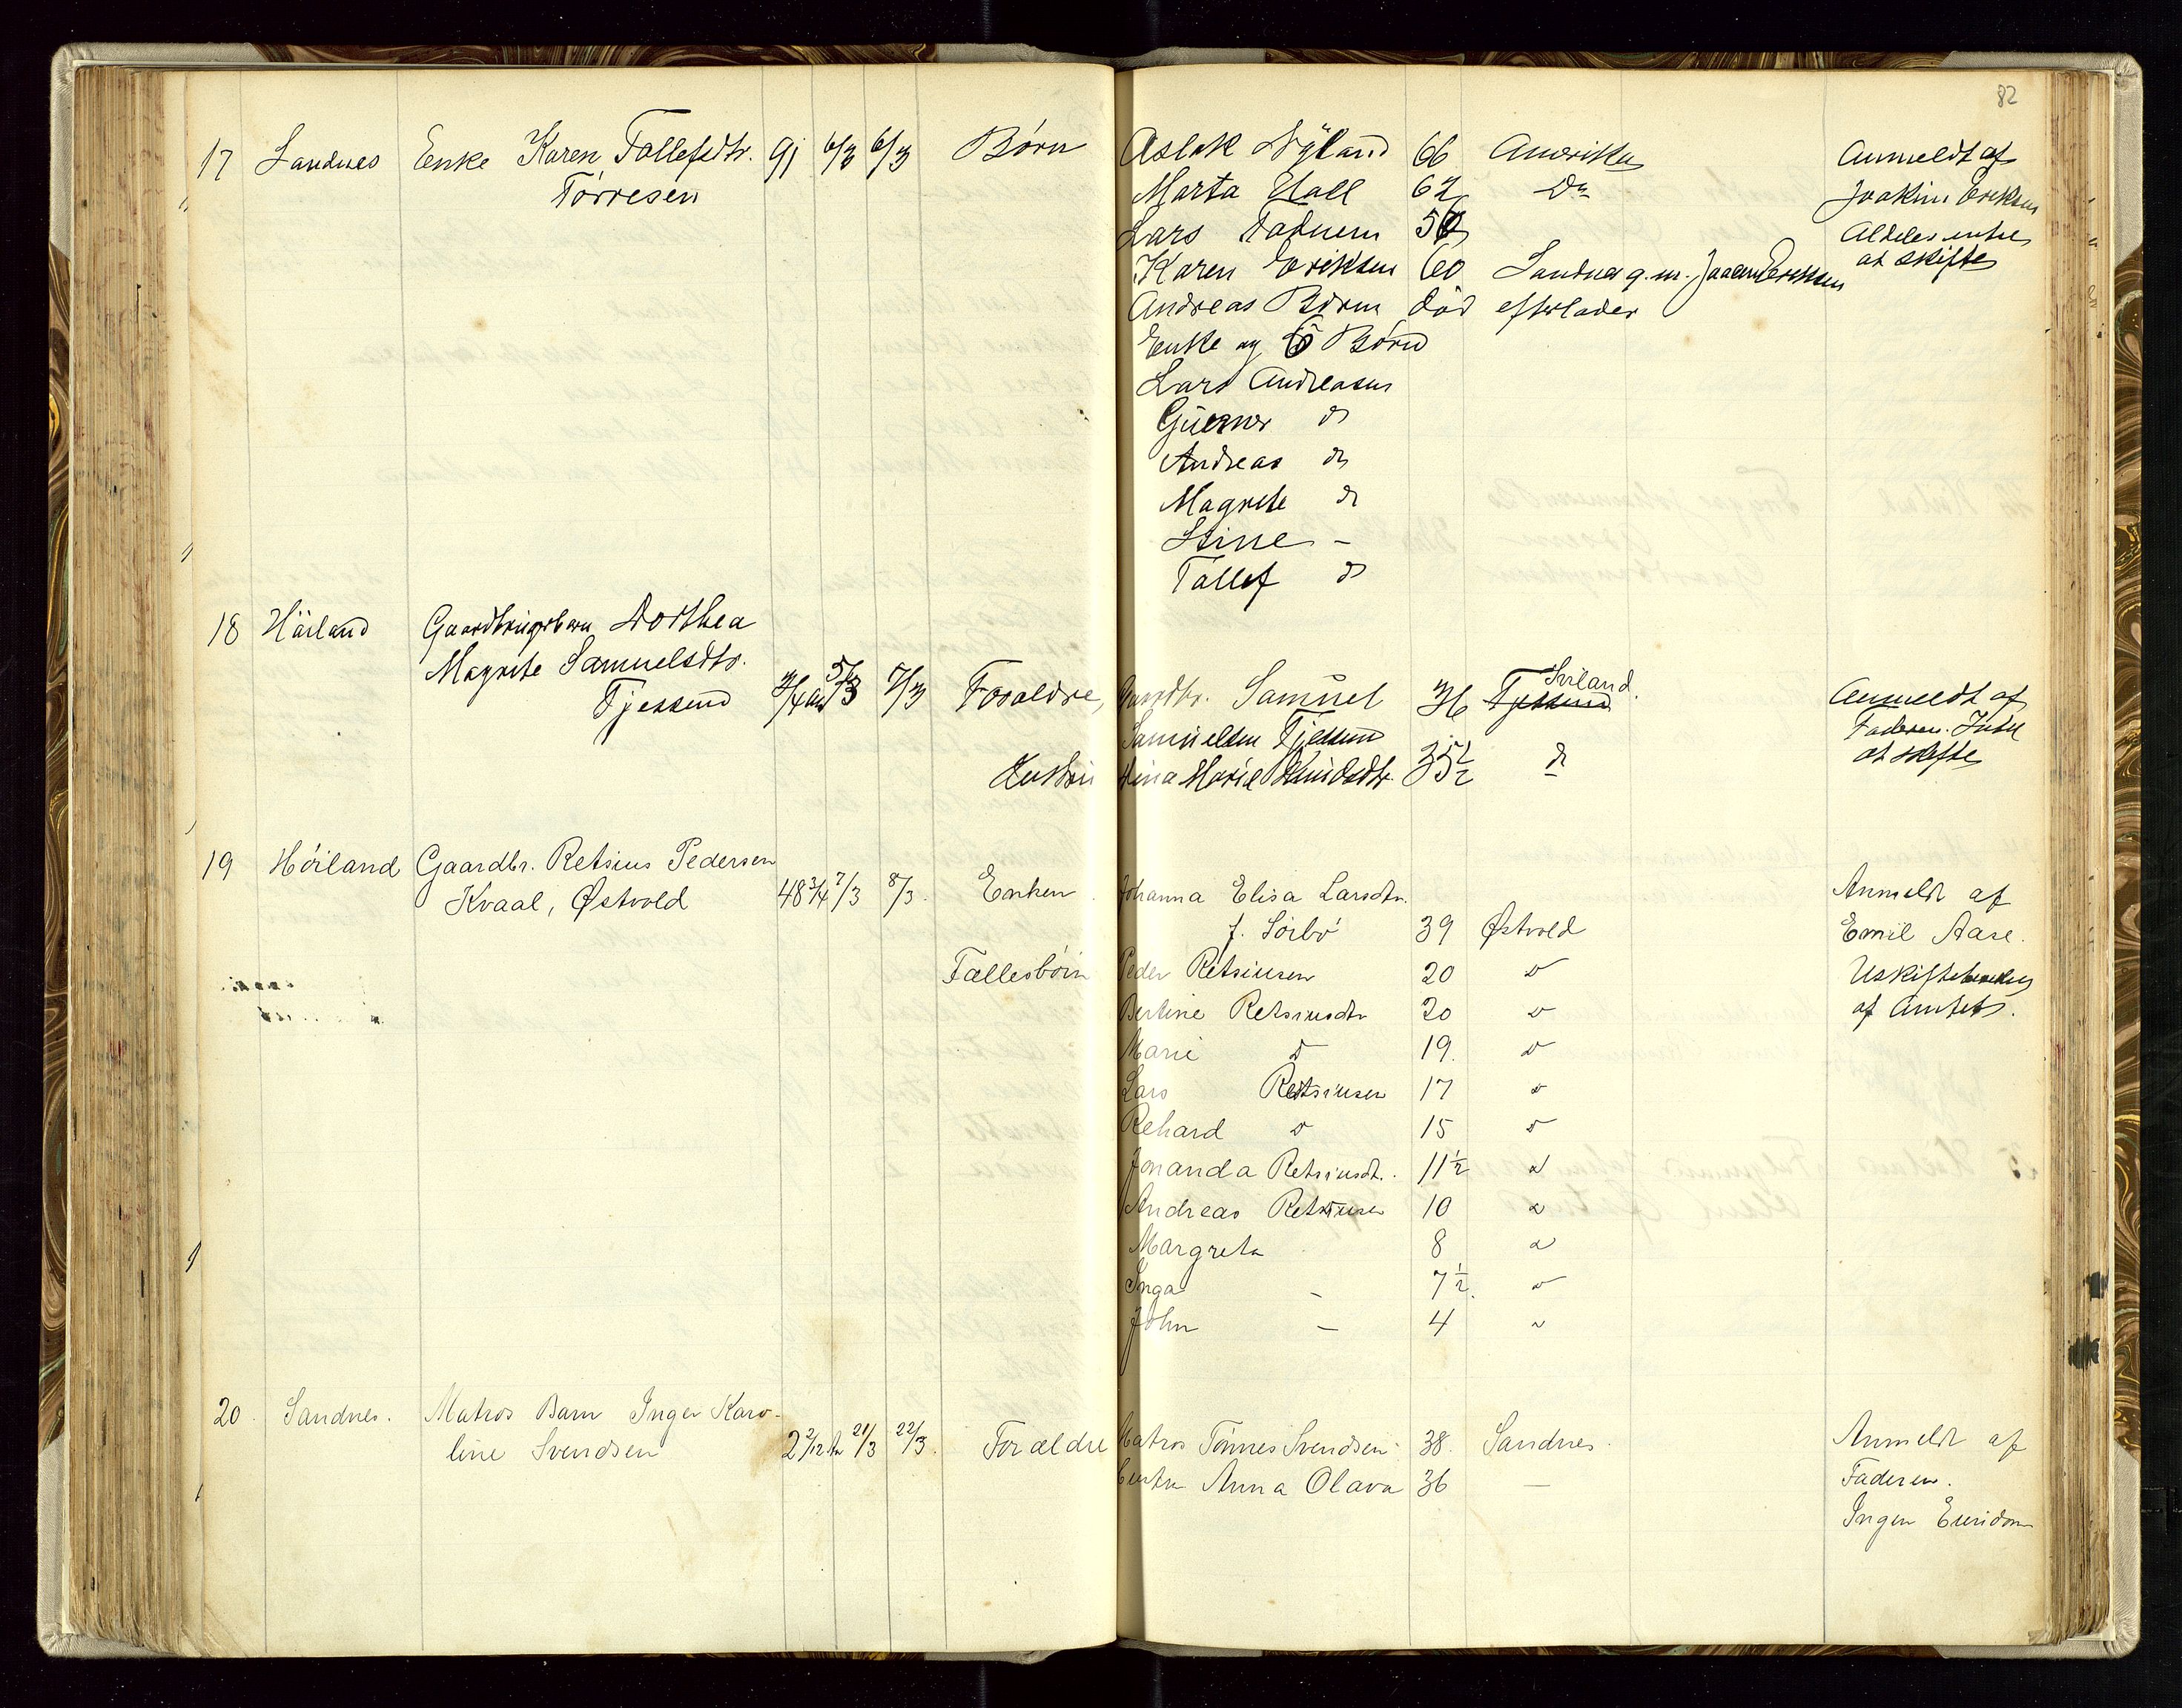 82
17 Sandnes Enke Karen Tollefsdtr. 91 6/3 6/3 Børn Aslak Nyland 66 Amerika Anmeldt af
Tørresen Marta Hall 62 Do Joakim Eriksen
Lars 56 Aldeles intet
Karen Eriksen 60 Sandnes g. m. Eriksen at skifte
Andreas død efterlader
Enke og 6 Børn
Lars Andreasen
do
Andreas do
Magrete do
Stine -
Tollef do
18 Höiland Gaardbrugerbarn Dorthea
Magrete Samuelsdtr.
Tjessem 3/4 aar 5/3 7/3 Foraldre, Gaardbr. Samuel 36 Tjessem Sviland. Anmeldt af
Samuelsen Tjessem Faderen. Intet
Hustru Stina Marie Knudsdtr. 35 1/2 do at skifte
19 Höiland Gaardbr. Retsius Pedersen
Kvaal, Østvold 48 3/4 7/3 8/3. Enken Johanna Elisa Larsdtr. Anmeldt af
f. Sörbö 39 Østvold Emil Aase.
Fællesbörn Peder Retsiusen 20 do Uskiftebevilling
Bertine Retsiusdtr 20 do af Amtet.
Marie do 19. do
Lars Retsiusen 17 do
Rehard do 15 do
Jonanda Retsiusdt. 11 1/2 do
Andreas Retsiusen 10 do
Margreta 8 do
Inga - 7 1/2. do
John - 4 do
20. Sandnes. Matros Barn Inger Karo-
line Svendsen 2 2/12 år 21/3 22/3. Forældre Matros Tönnes Svendsen 38. Sandnes. Anmeldt af
Hustru Anna Olava 36 - Faderen.
Ingen Eiendom